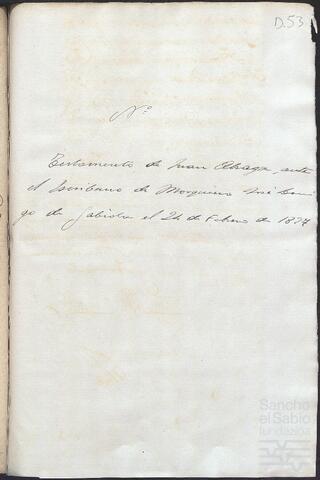 D.53
Nº
Testamento de Juan Aldaya, ante
el Escribano de Marquina José
go de Gabiola el 24 de Febrero de 1827
Sancho
el Sabio
fundazioa